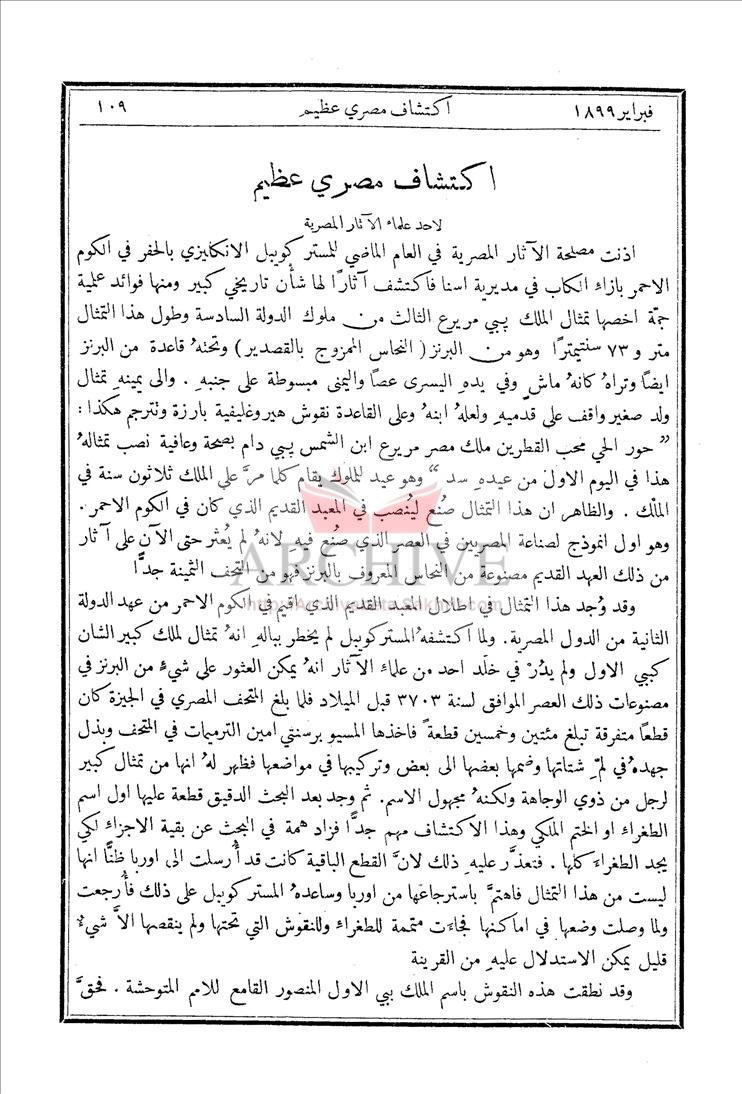 فبراير ١٨٩٩ اكتشاف مصري عظيم ١٠٩
اكتشاف مصري عظيم
لاحد علماء الآثار المصرية
اذنت مصلحة الآثار المصرية في العام الماضي للمستر كويبل الانكليزي بالحفر في الكوم
الاحمر بازاء الكاب في مديرية اسنا فاكتشف آثارًا لها شأن تاريخي كبير ومنها فوائد علمية
جمّة اخصها تمثال الملك پيبي مريرع الثالث من ملوك الدولة السادسة وطول هذا التمثال
متر و ٧٣ سنتيمترًا وهو من البرنز (النحاس الممزوج بالقصدير) وتحتهُ قاعدة من البرنز
ايضًا وتراهُ كانهُ ماشٍ وفي يدهِ اليسرى عصًا واليمنى مبسوطة على جنبهِ . والى يمينهِ تمثال
ولد صغير واقف على قدميهِ ولعلهُ ابنهُ وعلى القاعدة نقوش هيروغليفية بارزة وتترجم هكذا :
” حور الحي محب القطرين ملك مصر مريرع ابن الشمس پيبي دام بصحة وعافية نصب تمثالهُ
هذا في اليوم الاول من عيدهِ سد “ وهو عيد للملوك يقام كلما مرَّ على الملك ثلاثون سنة في
الملْك . والظاهر ان هذا التمثال صُنع ليُنصب في المعبد القديم الذي كان في الكوم الاحمر .
وهو اول انموذج لصناعة المصريين في العصر الذي صُنع فيهِ لانهُ لم يُعثر حتى الآن على آثار
من ذلك العهد القديم مصنوعة من النحاس المعروف بالبرنز فهو من التحف الثمينة جدًّا
ARCHIVE
وقد وُجد هذا التمثال في اطلال المعبد القديم الذي اقيم في الكوم الاحمر من عهد الدولة
الثانية من الدول المصرية. ولما اكتشفهُ المستر كويبل لم يخطر ببالهِ انهُ تمثال لملك كبير الشان
كبيي الاول ولم يدُرْ في خلَد احد من علماء الآثار انهُ يمكن العثور على شيءٍ من البرنز في
مصنوعات ذلك العصر الموافق لسنة ٣٧٠٣ قبل الميلاد فلما بلغ المتحف المصري في الجيزة كان
قطعًا متفرقة تبلغ مئتين وخمسين قطعةً فاخذها المسيو برسنتي امين الترميمات في المتحف وبذل
جهدهُ في لمِّ شتاتها وضمها بعضها الى بعض وتركيبها في مواضعها فظهر لهُ انها من تمثال كبير
لرجل من ذوي الوجاهة ولكنهُ مجهول الاسم. ثم وجد بعد البحث الدقيق قطعة عليها اول اسم
الطغراء او الختم الملكي وهذا الاكتشاف مهم جدًّا فزاد همة في البحث عن بقية الاجزاء لكي
يجد الطغراء كلها . فتعذَّر عليهِ ذلك لانَّ القطع الباقية كانت قد أُرسلت الى اوربا ظنًّا انها
ليست من هذا التمثال فاهتمَّ باسترجاعها من اوربا وساعدهُ المستر كويبل على ذلك فأُرجعت
ولما وصلت وضعها في اماكنها فجاءَت متممة للطغراء وللنقوش التي تحتها ولم ينقصها الاَّ شيءٌ
قليل يمكن الاستدلال عليهِ من القرينة
وقد نطقت هذه النقوش باسم الملك بيي الاول المنصور القامع للامم المتوحشة . فحقَّ